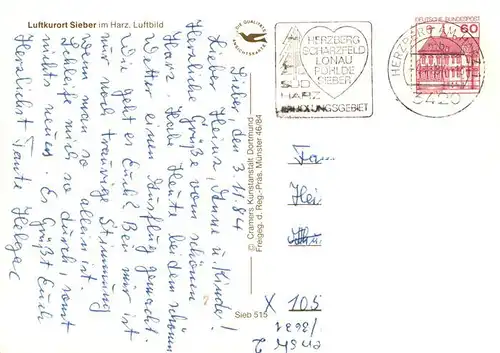 Luftkurort Sieber im Harz. Luftbild
DIE QUALITÄTS
ANSICHTSKARTE
Sieber, den 3.11.84
Lieber Heinz, Anne u. Kinder!
Herzliche Grüße vom schönen
Harz. Habe Heute bei dem schönen
Wetter einen Ausflug gemacht.
Wie geht es Euch? Bei mir ist
nur noch traurige Stimmung
wenn man so allein ist.
Schleife mich so durch, sonst
nichts neues. Es Grüßt Euch
Herzlichst Tante Helga
© Cramers Kunstanstalt Dortmund
Freigeg. d. Reg.-Präs. Münster 46/84
Sieb 515
HERZBERG
SCHARZFELD
LONAU
PÖHLDE
SIEBER
SÜD
HARZ
ERHOLUNGSGEBIET
HERZBERG AM HARZ
3420
DEUTSCHE BUNDESPOST
60
Fam.
Hei
X 105